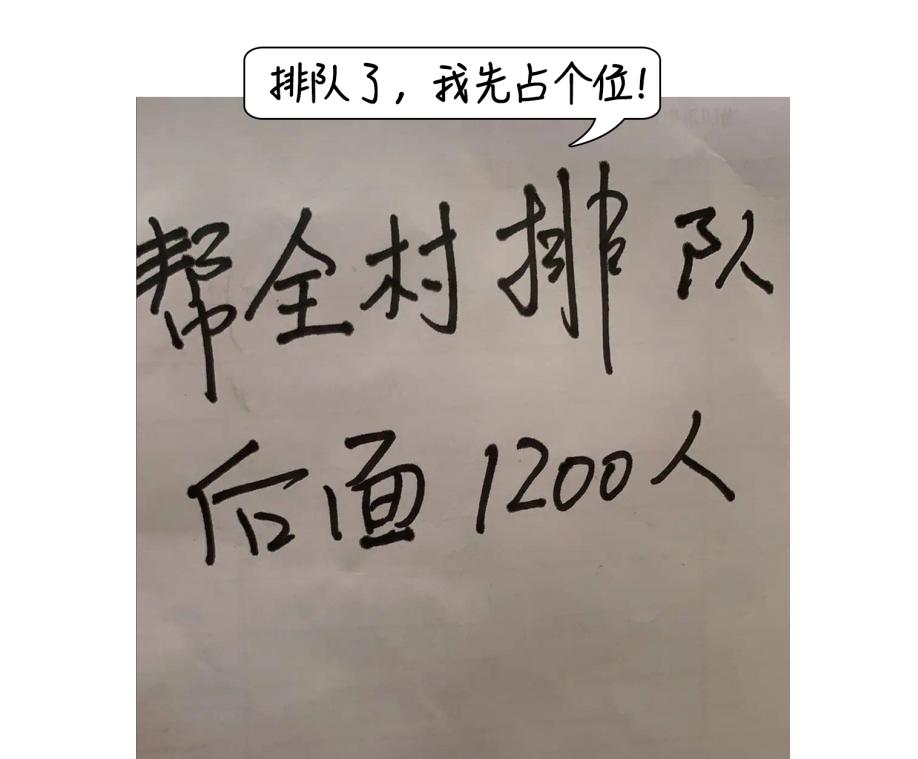 排队了，我先占个位！
帮全村排队
后面1200人